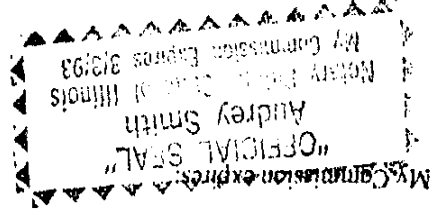 My Commission expires:
"OFFICIAL SEAL"
Audrey Smith
Notary Public, State of Illinois
My Commission Expires 3/3/93